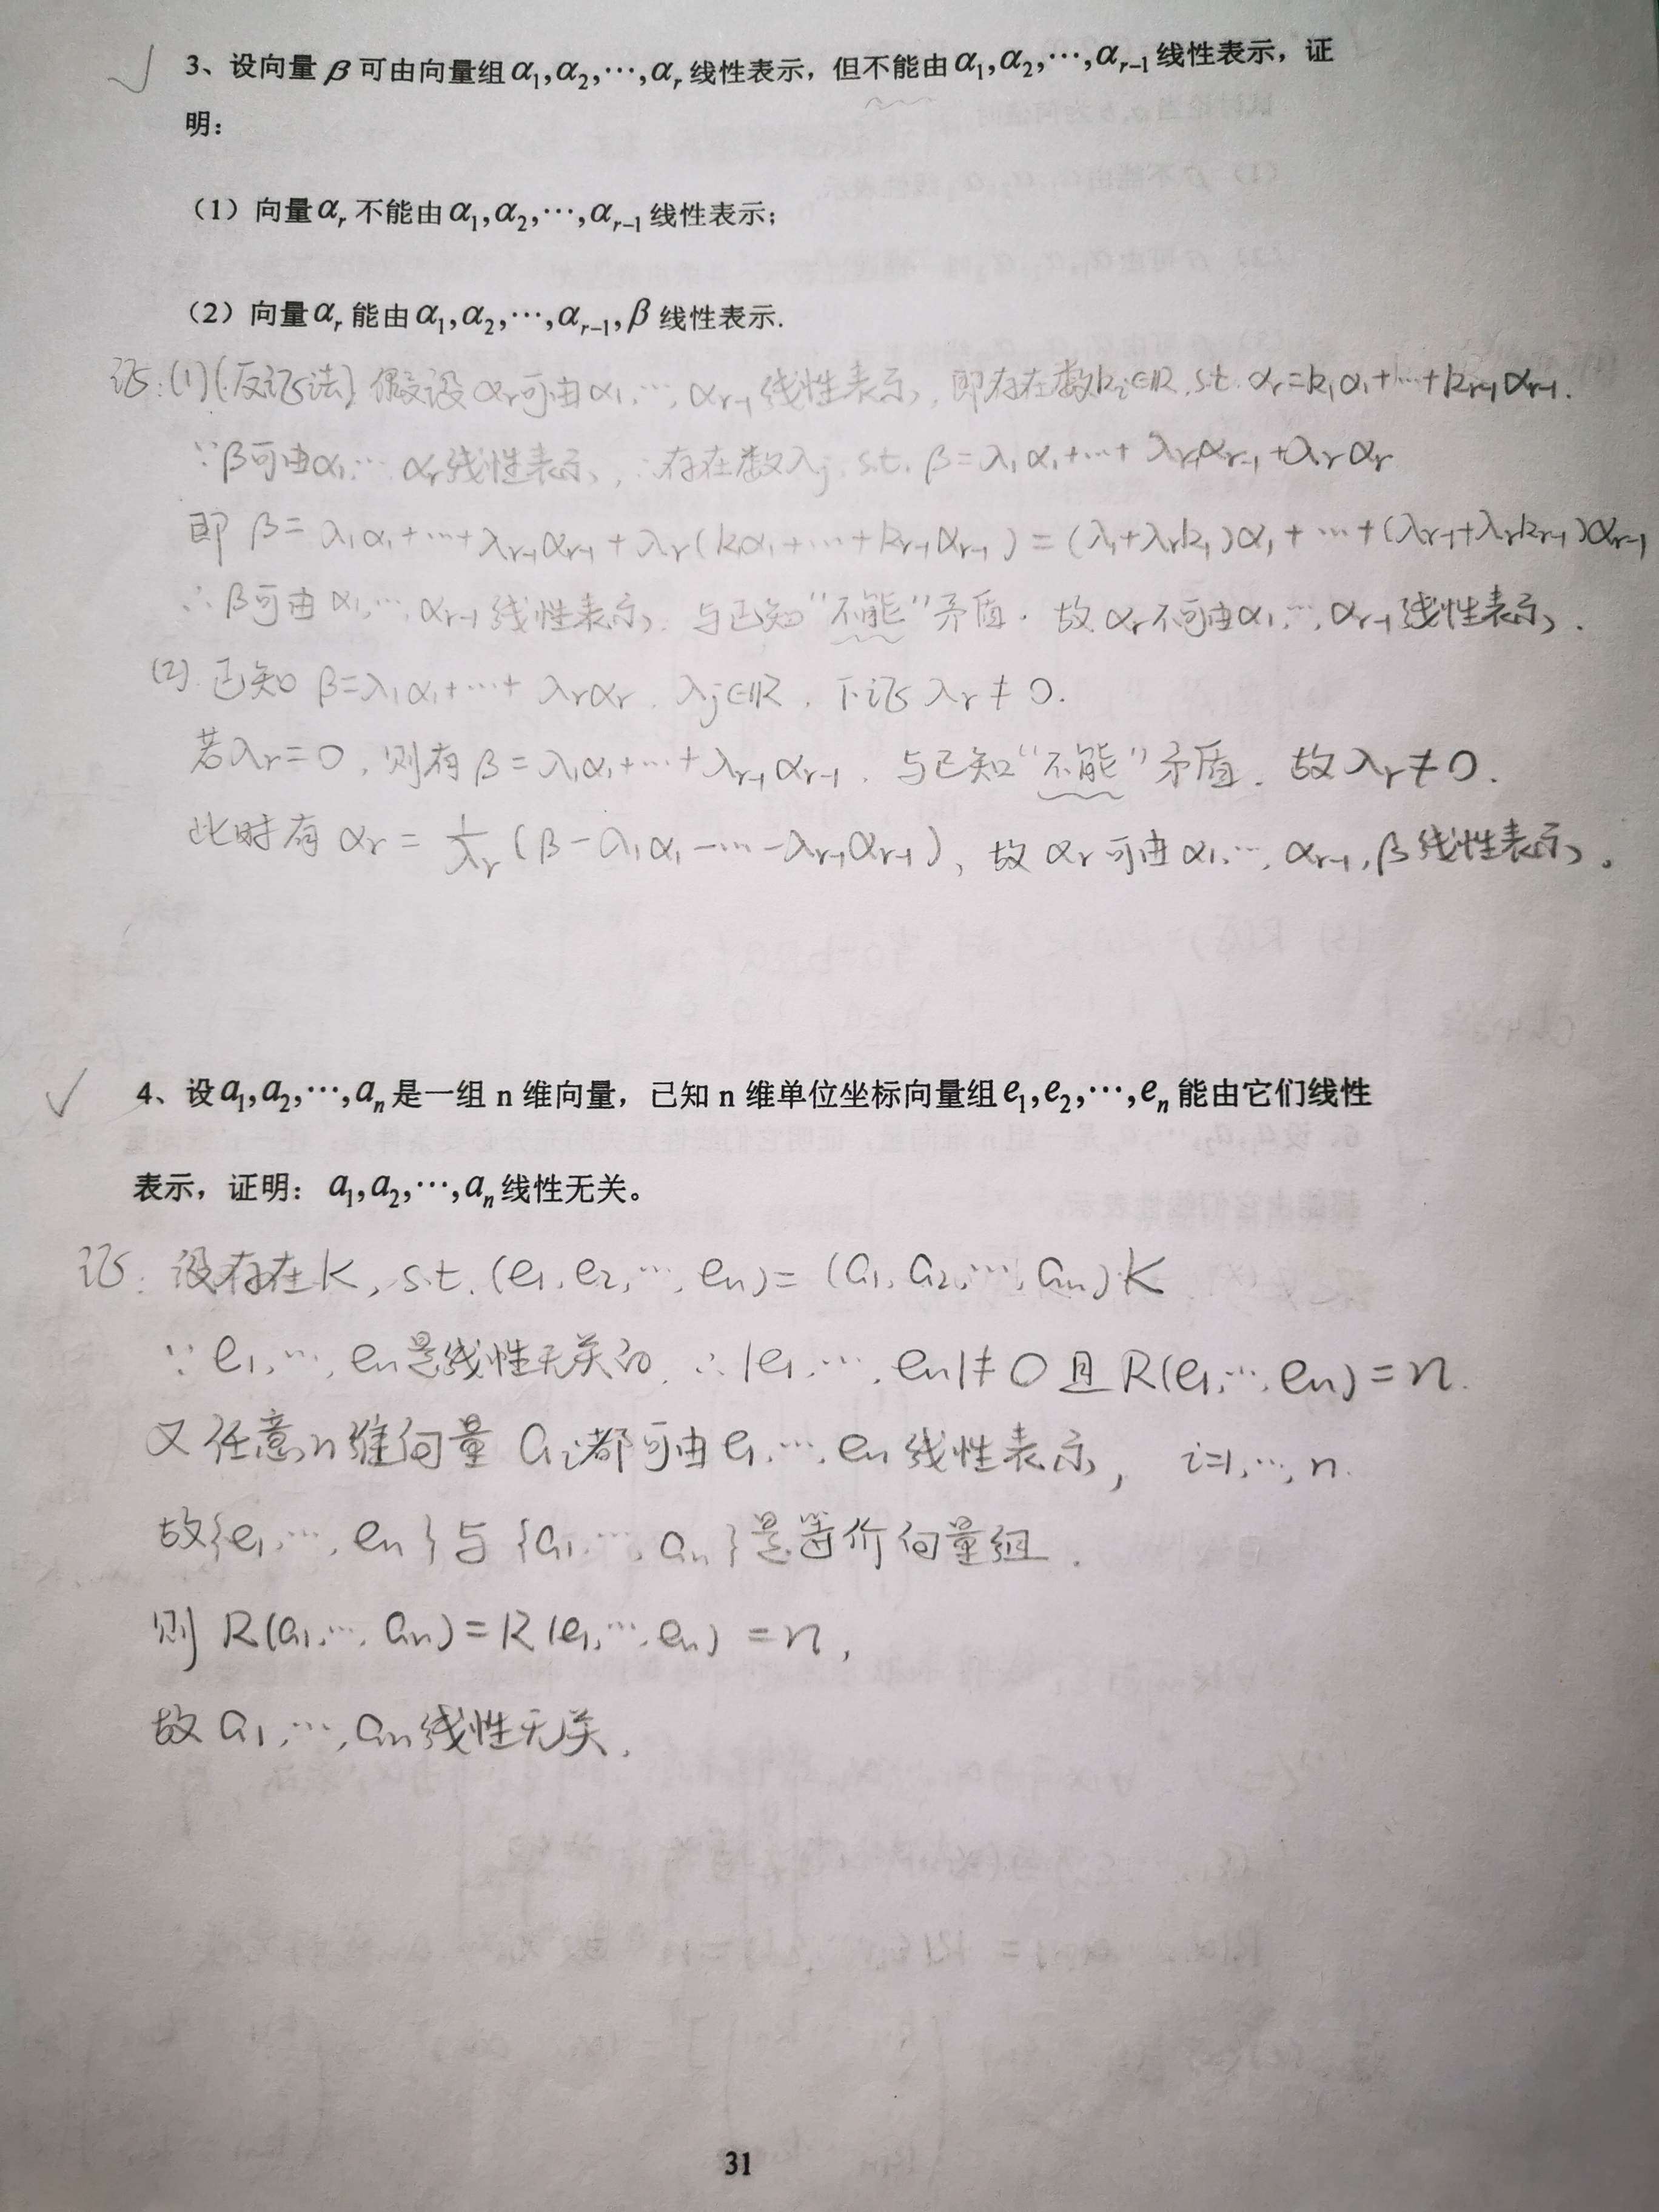 3、设向量 β 可由向量组 α₁,α₂,⋯,αᵣ 线性表示，但不能由 α₁,α₂,⋯,αᵣ₋₁ 线性表示，证
明：
（1）向量 αᵣ 不能由 α₁,α₂,⋯,αᵣ₋₁ 线性表示；
（2）向量 αᵣ 能由 α₁,α₂,⋯,αᵣ₋₁,β 线性表示.
证:(1)(反证法) 假设αᵣ可由α₁,⋯,αᵣ₋₁线性表示, 即存在数kᵢ∈ℝ, s.t. αᵣ=k₁α₁+⋯+kᵣ₋₁αᵣ₋₁.
∵β可由α₁,⋯ αᵣ线性表示, ∴存在数λⱼ, s.t. β=λ₁α₁+⋯+λᵣ₋₁αᵣ₋₁+λᵣαᵣ
即 β=λ₁α₁+⋯+λᵣ₋₁αᵣ₋₁+λᵣ(k₁α₁+⋯+kᵣ₋₁αᵣ₋₁)=(λ₁+λᵣk₁)α₁+⋯+(λᵣ₋₁+λᵣkᵣ₋₁)αᵣ₋₁
∴β可由α₁,⋯,αᵣ₋₁线性表示, 与已知“不能”矛盾. 故αᵣ不可由α₁,⋯,αᵣ₋₁线性表示.
(2). 已知 β=λ₁α₁+⋯+λᵣαᵣ, λⱼ∈ℝ, 下证 λᵣ≠0.
若λᵣ=0, 则有β=λ₁α₁+⋯+λᵣ₋₁αᵣ₋₁, 与已知“不能”矛盾. 故λᵣ≠0.
此时有 αᵣ=1/λᵣ(β-λ₁α₁-⋯-λᵣ₋₁αᵣ₋₁), 故αᵣ可由α₁,⋯,αᵣ₋₁,β线性表示。
4、设 a₁,a₂,⋯,aₙ 是一组 n 维向量，已知 n 维单位坐标向量组 e₁,e₂,⋯,eₙ 能由它们线性
表示，证明：a₁,a₂,⋯,aₙ 线性无关。
证: 设存在K, s.t. (e₁,e₂,⋯,eₙ)=(a₁,a₂,⋯,aₙ)·K
∵ e₁,⋯,eₙ是线性无关的, ∴|e₁,⋯,eₙ|≠0 且 R(e₁,⋯,eₙ)=n.
又任意n维向量 aᵢ都可由e₁,⋯,eₙ线性表示, i=1,⋯,n.
故{e₁,⋯,eₙ}与{a₁,⋯,aₙ}是等价向量组.
则 R(a₁,⋯,aₙ)=R(e₁,⋯,eₙ)=n,
故 a₁,⋯,aₙ线性无关.
31